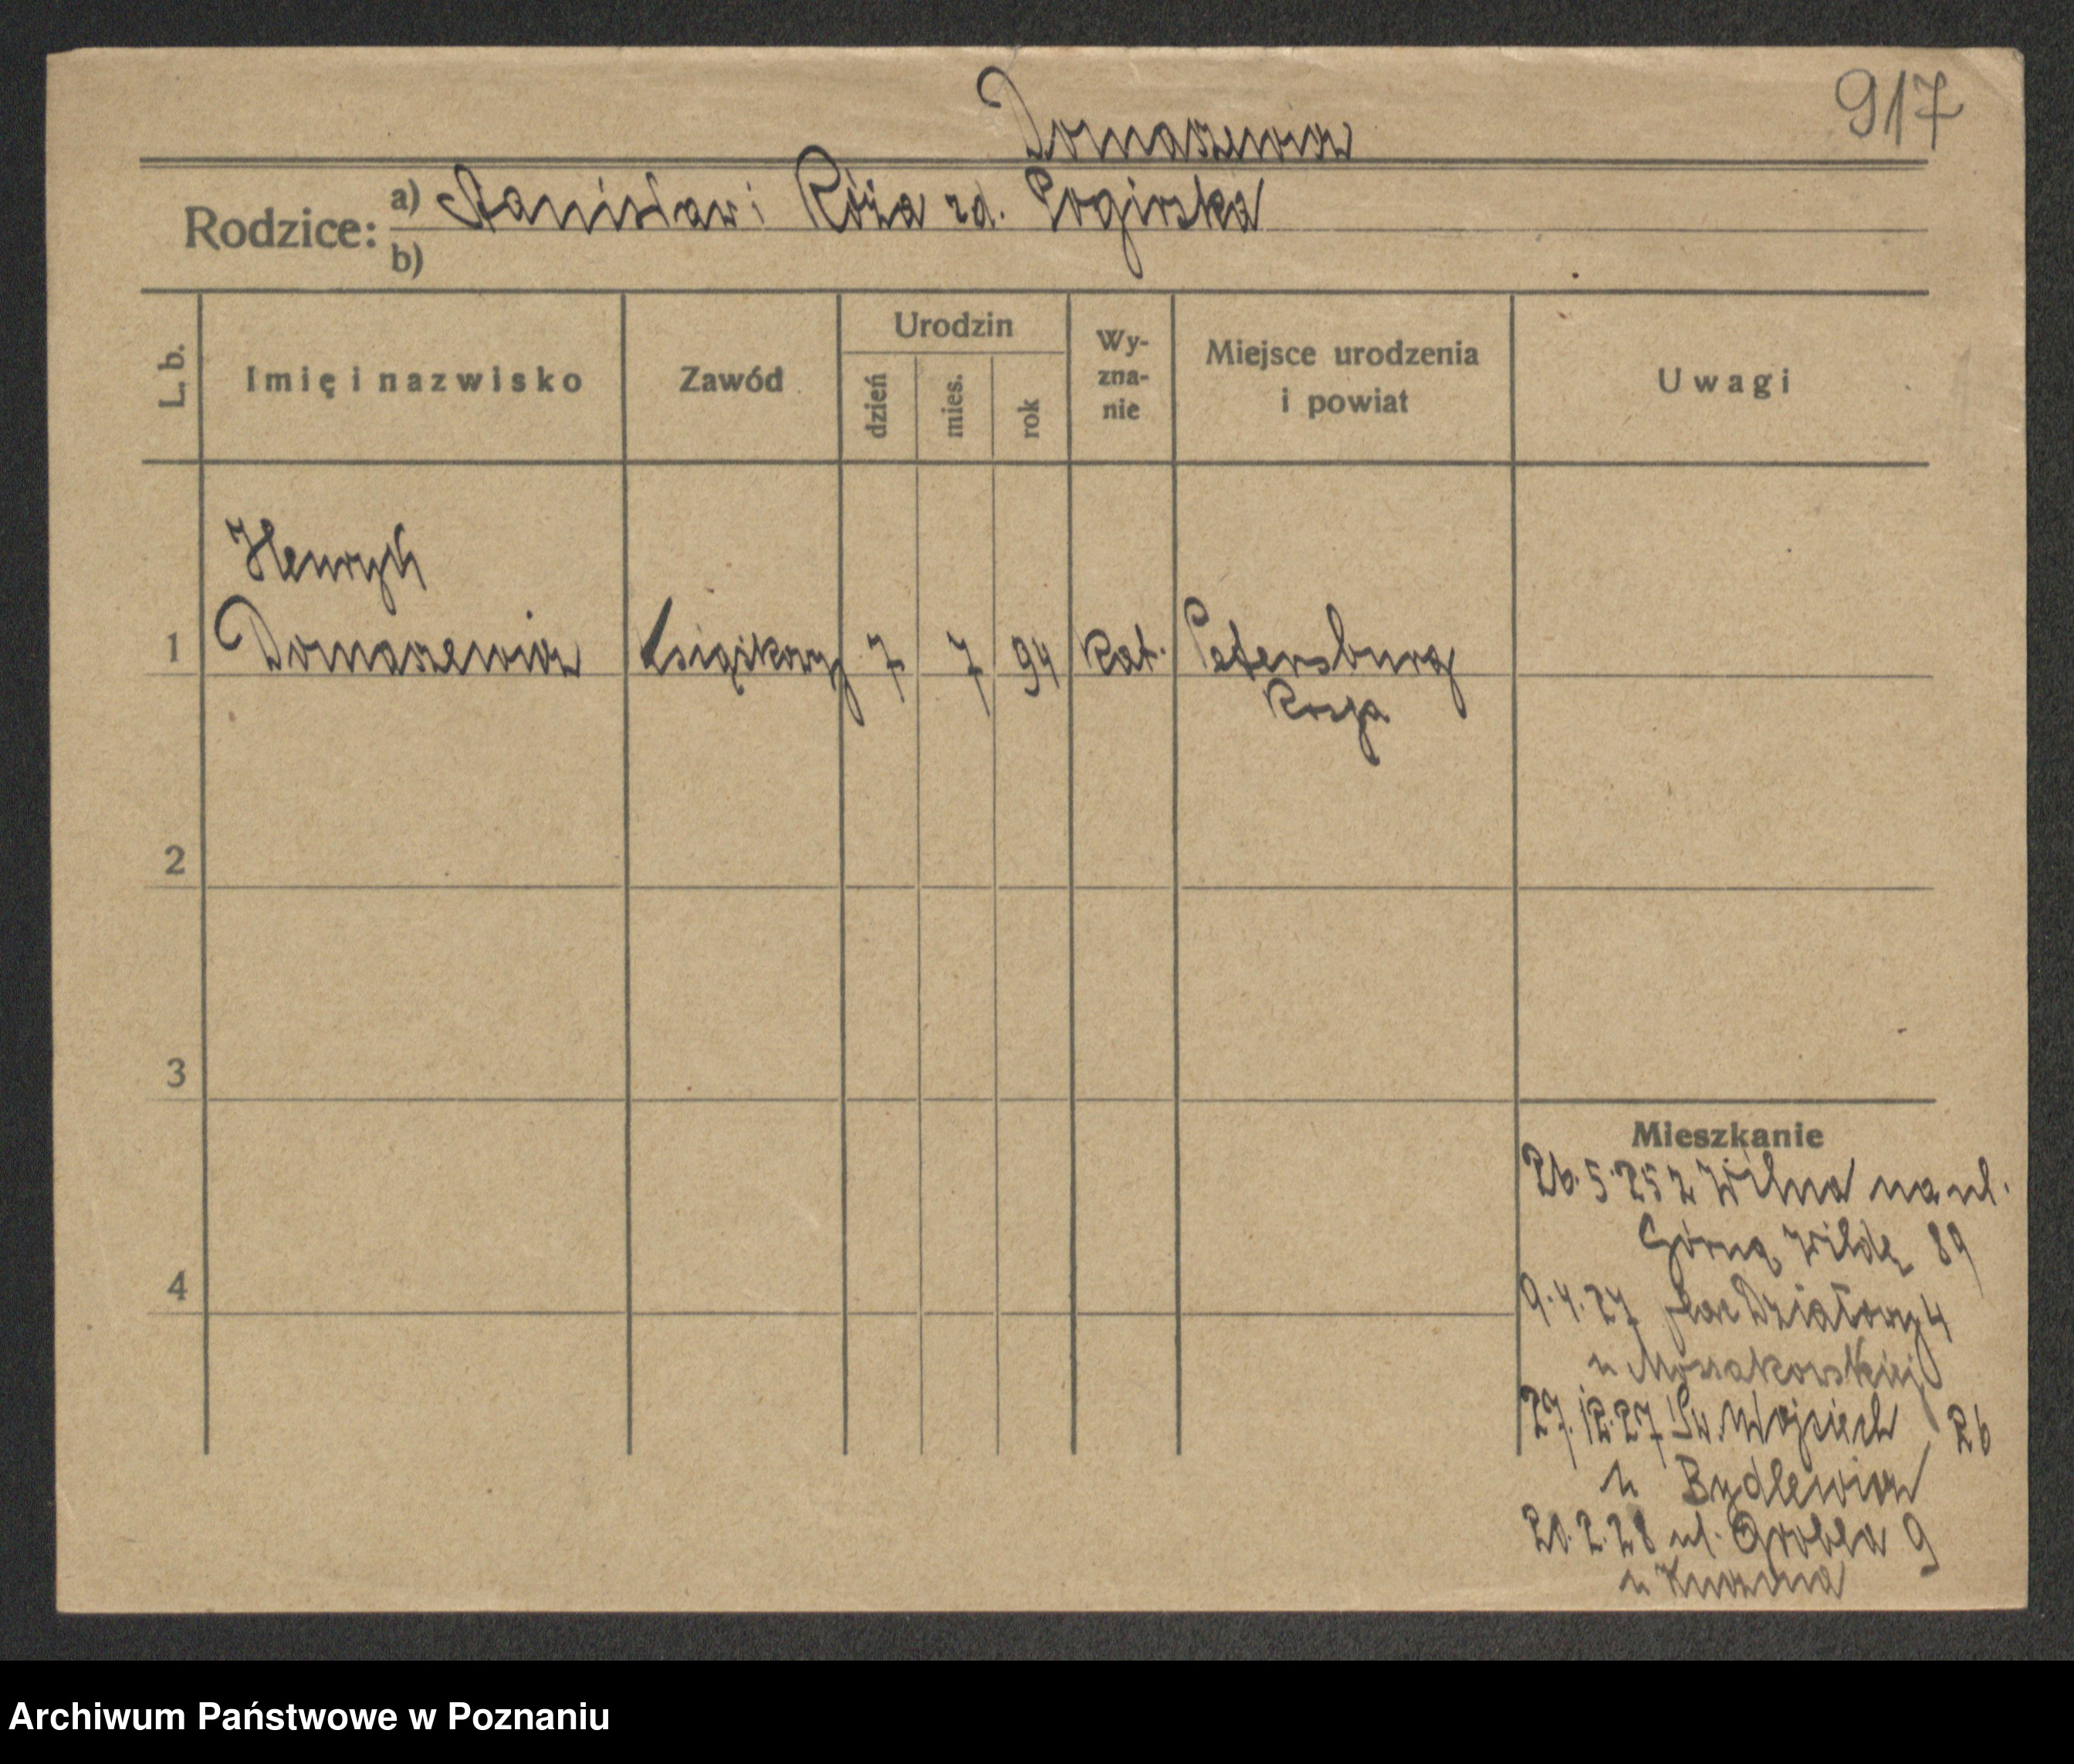 917
Domaszewicz
Rodzice: a) Stanisław i Róża zd. Pogirska
b)
L. b.
Imię i nazwisko
Zawód
Urodzin
dzień
mies.
rok
Wy-
zna-
nie
Miejsce urodzenia
i powiat
Uwagi
Henryk
1 Domaszewicz Książkowy 7 7 94 kat. Petersburg
Rosja
2
3
4
Mieszkanie
26.5.25 z Wilna na ul.
Górną Wildę 89
9.4.27 plac Działowy 4
u Mossakowskiej
27.12.27 Św. Wojciech 26
u Bydlewicz
20.2.28 ul. Grobla 9
u
Archiwum Państwowe w Poznaniu